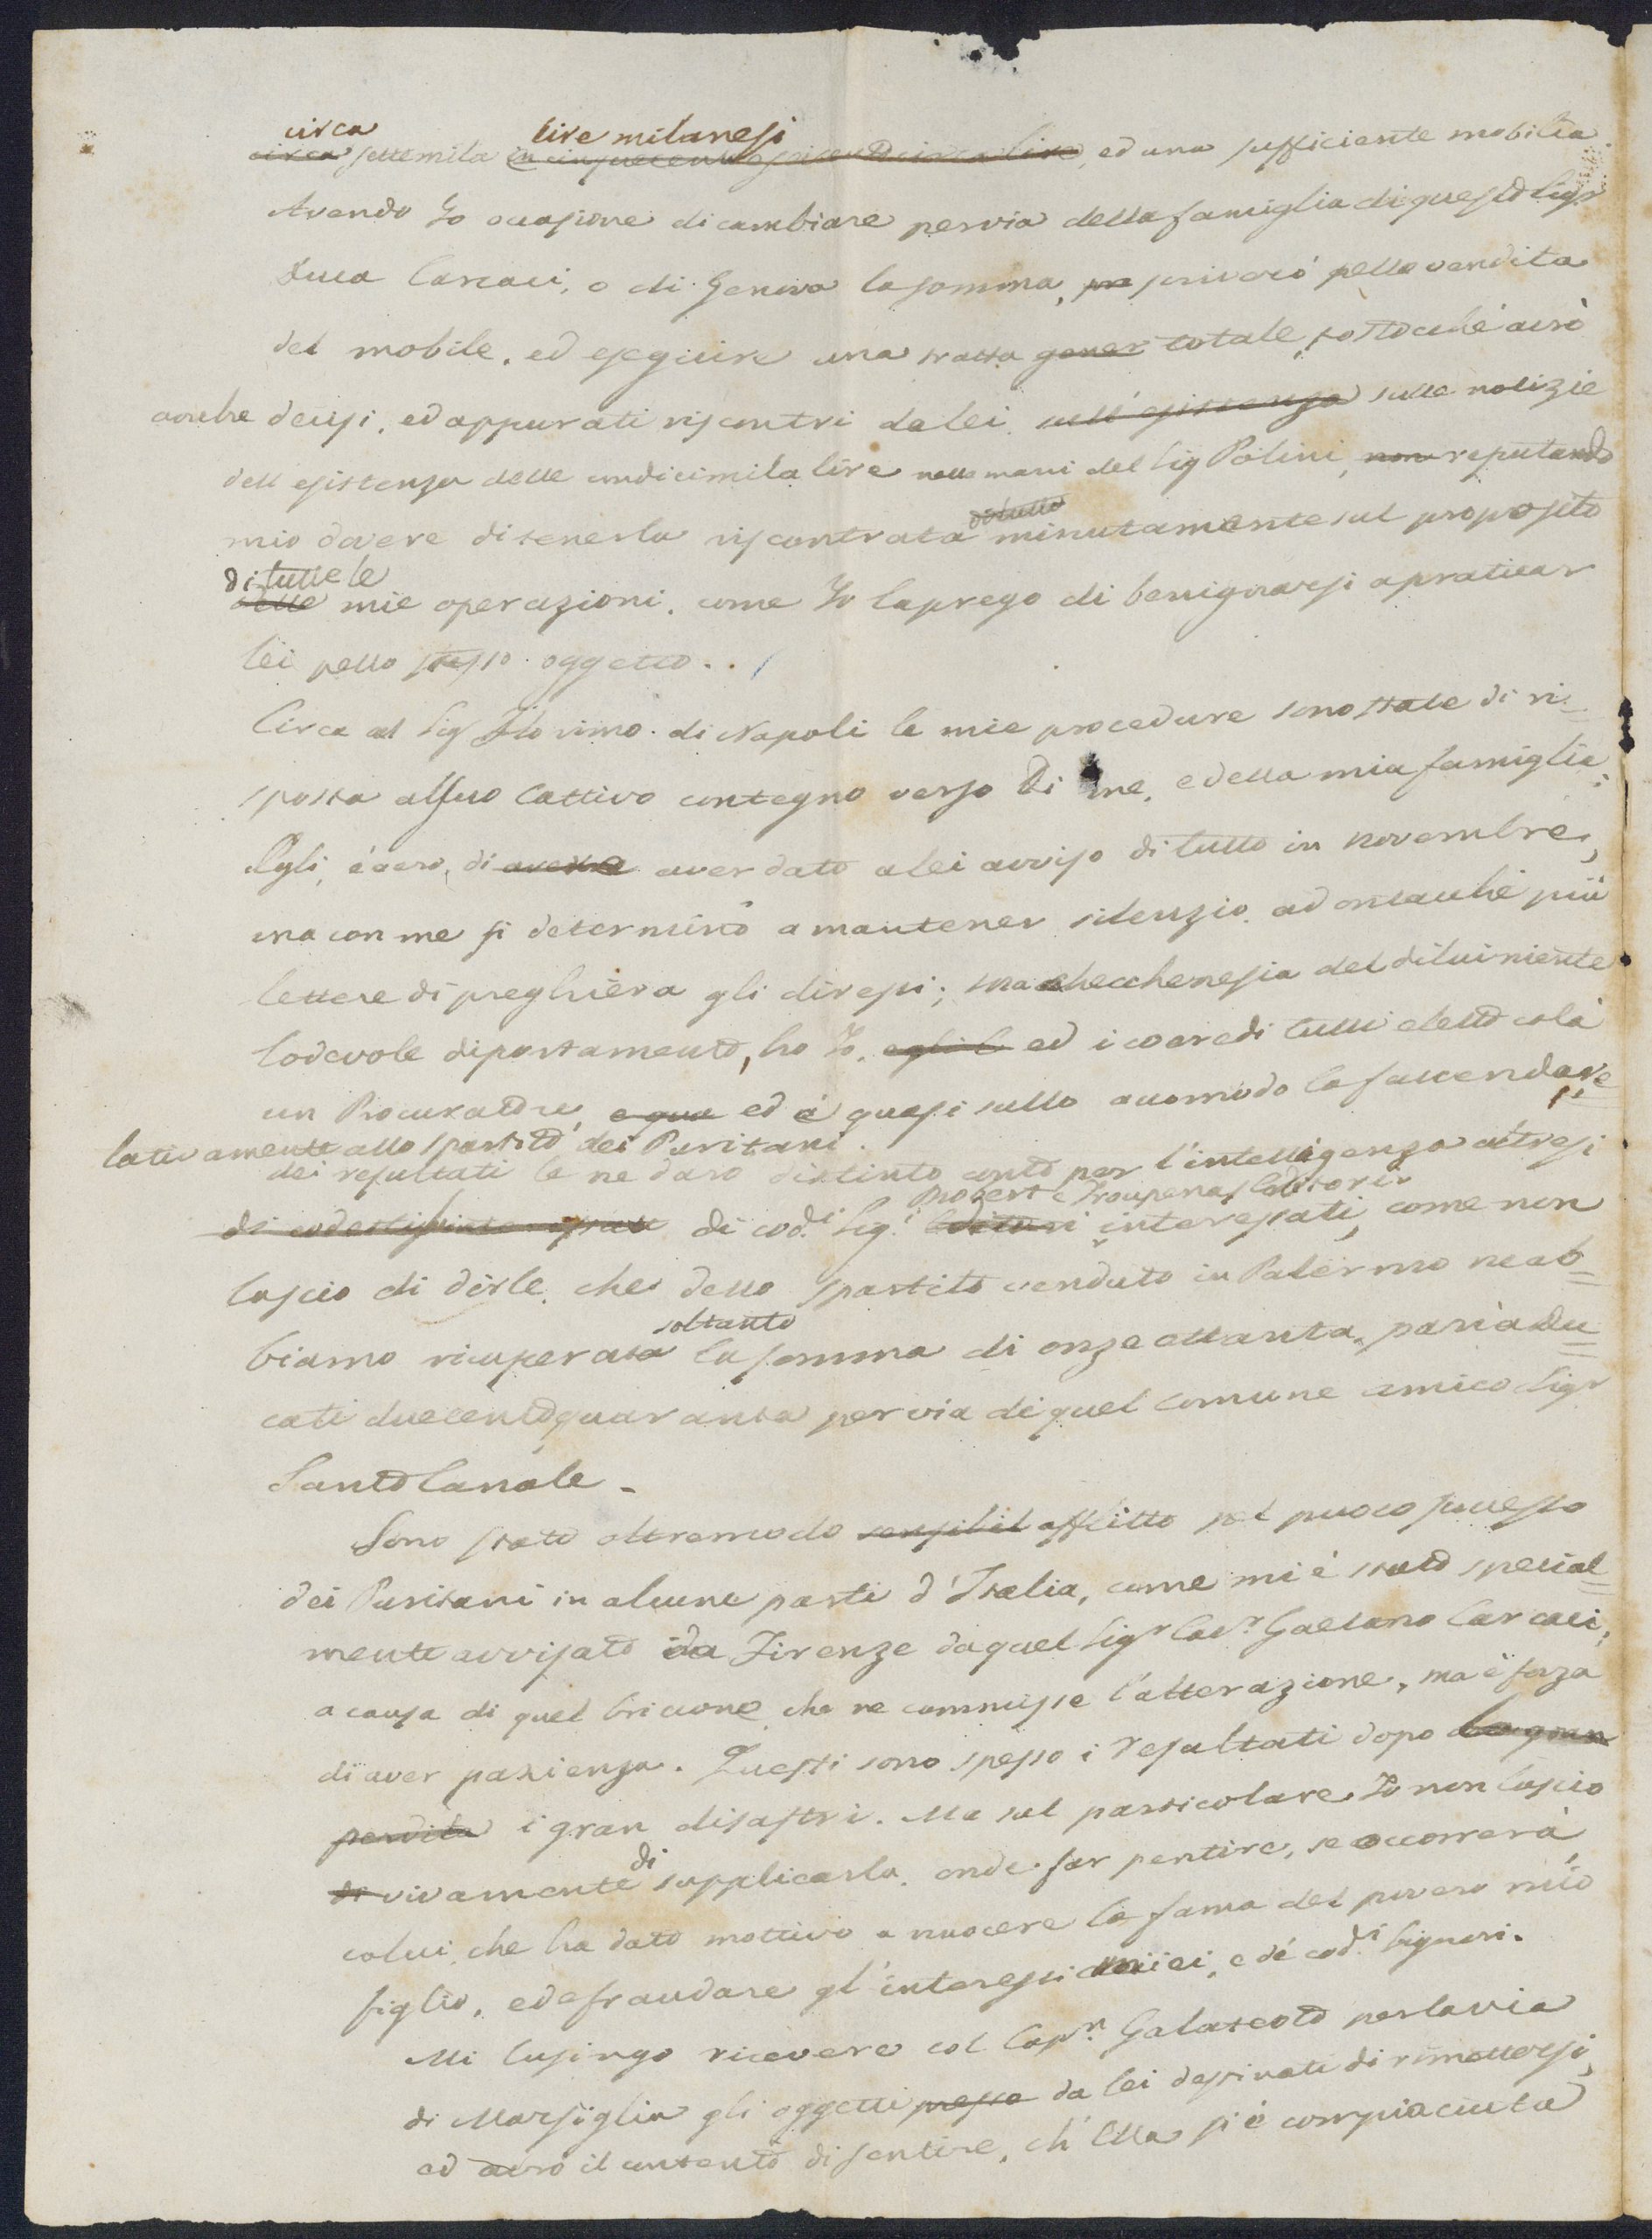 circa lire milanesi
circa settemila e cinquecento, ed una sufficiente mobilia.
Avendo Io occasione di cambiare per via della famiglia di questo Sigr
Duca Carcaci, o di Genova la somma, pre priverò pella vendita
del mobile, ed eseguire una tratta gener totale, tostocchè avrò
avuke decisi, ed appurati riscontri da lei, sull'esistenza sulle notizie
dell esistenza delle undicimila lire nelle mani del Sig Polini, non reputando
ditutto
mio dovere di tenerla riscontrata minutamente sul proposito
di tutte le
delle mie operazioni, come Io la prego di benignarsi a praticar
lei pello stesso oggetto..
Circa al Sig Florimo di Napoli le mie procedure sono state di ri=
sposta al suo cattivo contegno verso Di me, e della mia famiglia;
Egli, è vero, di avere aver dato a lei avviso di tutto in novembre,
ma con me si determinò a mantener silenzio, ad ontacchè più
lettere di preghiera gli diressi; ma checchenesia del dilui niente
lodevole diportamento, ho Io, egli l ed i coeredi tutti eletto colà
un Procuratore, e qua ed è quasi sullo accomodo la faccenda re=
lativamente allo spartito dei Puritani.
dei resultati le ne darò distinto conto per l'intelligenza altresì
Troupenas Editori
di codesti di cod.i Sig.i Editori interessati, come non
lascio di dirle, che dello spartito venduto in Palermo ne ab=
soltanto
biamo ricuperata la somma di onze ottanta, pari a du=
cati duecentoquaranta per via di quel comune amico Sigr
Santocanale.
Sono stato oltremodo sensibil afflitto pel puoco successo
dei Puritani in alcune parti d'Italia, come mi è stato special=
mente avvisato da Firenze da quel Sigr Cavr. Gaetano Carcaci,
a causa di quel briccone, che ne commisse l'alterazione, ma è forza
di aver pazienza. Questi sono spesso i resultati dopo la gran
perdita i gran disastri. Ma sul particolare Io non lascio
di
di vivamente supplicarla, onde far pentire, se occorrerà,
colui, che ha dato mottivo a nuocere la fama del povero mio
figlio, e defraudare gl'interessi miei, e de' cod.i Signori.
Mi lusingo ricevere col Capn. Galateoto per la via
di Marsiglia gli oggetti presso da lei destinati di rimettersi,
ed avrò il contento di sentire, ch'Ella si è compiaciuta